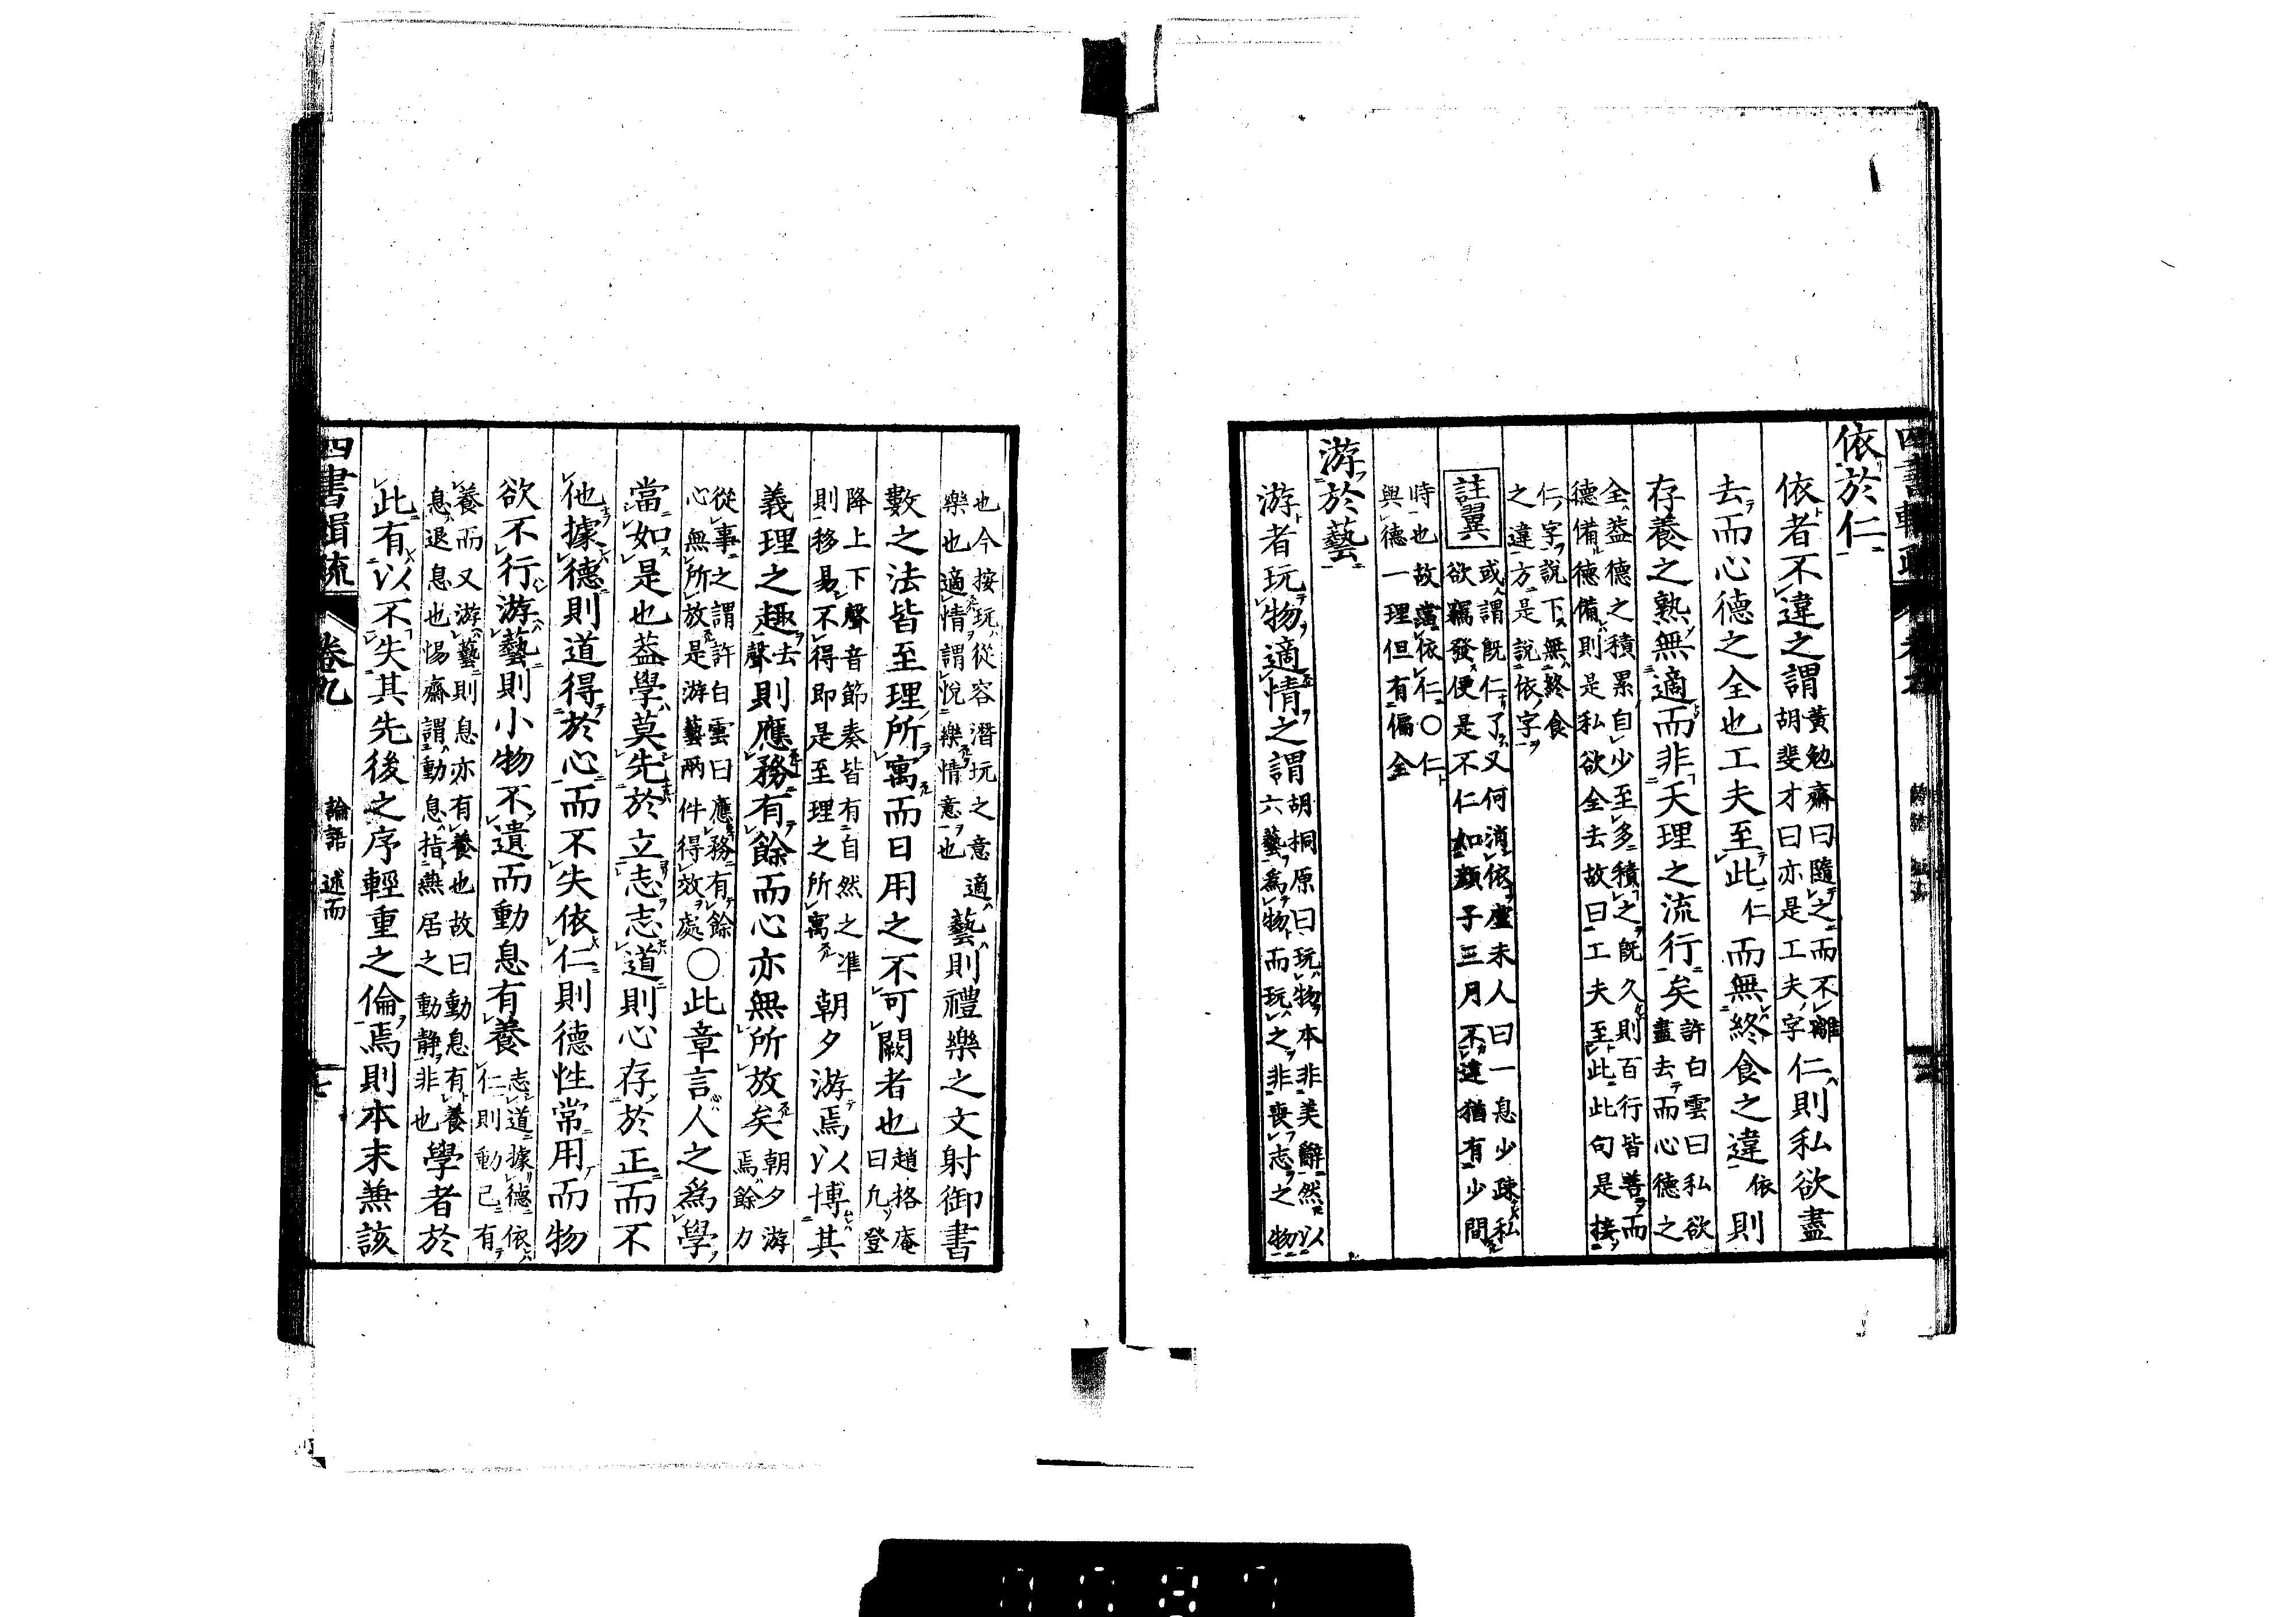 依於仁
依者不違之謂黃勉齋曰隨之而不離胡斐才曰亦是工夫字仁則私欲盡
去而心德之全也工夫至此仁而無終食之違依則
存養之熟無適而非天理之流行矣許白雲曰私欲盡去而心德之
全蓋德之積累自少至多積之既久則百行皆善而德備德備則是私欲全去故曰工夫至此此句是接
仁字說下無終食之違方是說依字
註翼或謂既仁了又何消依盧未人曰一息少疎私欲竊發便是不仁如顏子三月不違猶有少間
時也故當依仁○仁與德一理但有偏全
游於藝
游者玩物適情之謂胡桐原曰玩物本非美辭然以六藝為物而玩之非喪志之物
也今按玩從容潛玩之意適樂也適情謂悅樂情意也藝則禮樂之文射御書
數之法皆至理所寓而日用之不可闕者也趙格庵曰九登
降上下聲音節奏皆有自然之準則移易不得即是至理之所寓朝夕游焉以博其
義理之趣去聲則應務有餘而心亦無所放矣朝夕游焉餘力
從事之謂許白雲曰應務有餘心無所放是游藝兩件得效處○此章言人之為學
當如是也蓋學莫先於立志志道則心存於正而不
他據德則道得於心而不失依仁則德性常用而物
欲不行游藝則小物不遺而動息有養志道據德依仁則動已有
養而又游藝則息亦有養也故曰動息有養息退息也惕齋謂動息指燕居之動靜非也學者於
此有以不失其先後之序輕重之倫焉則本末兼該
四書輯疏 卷九 論語 述而